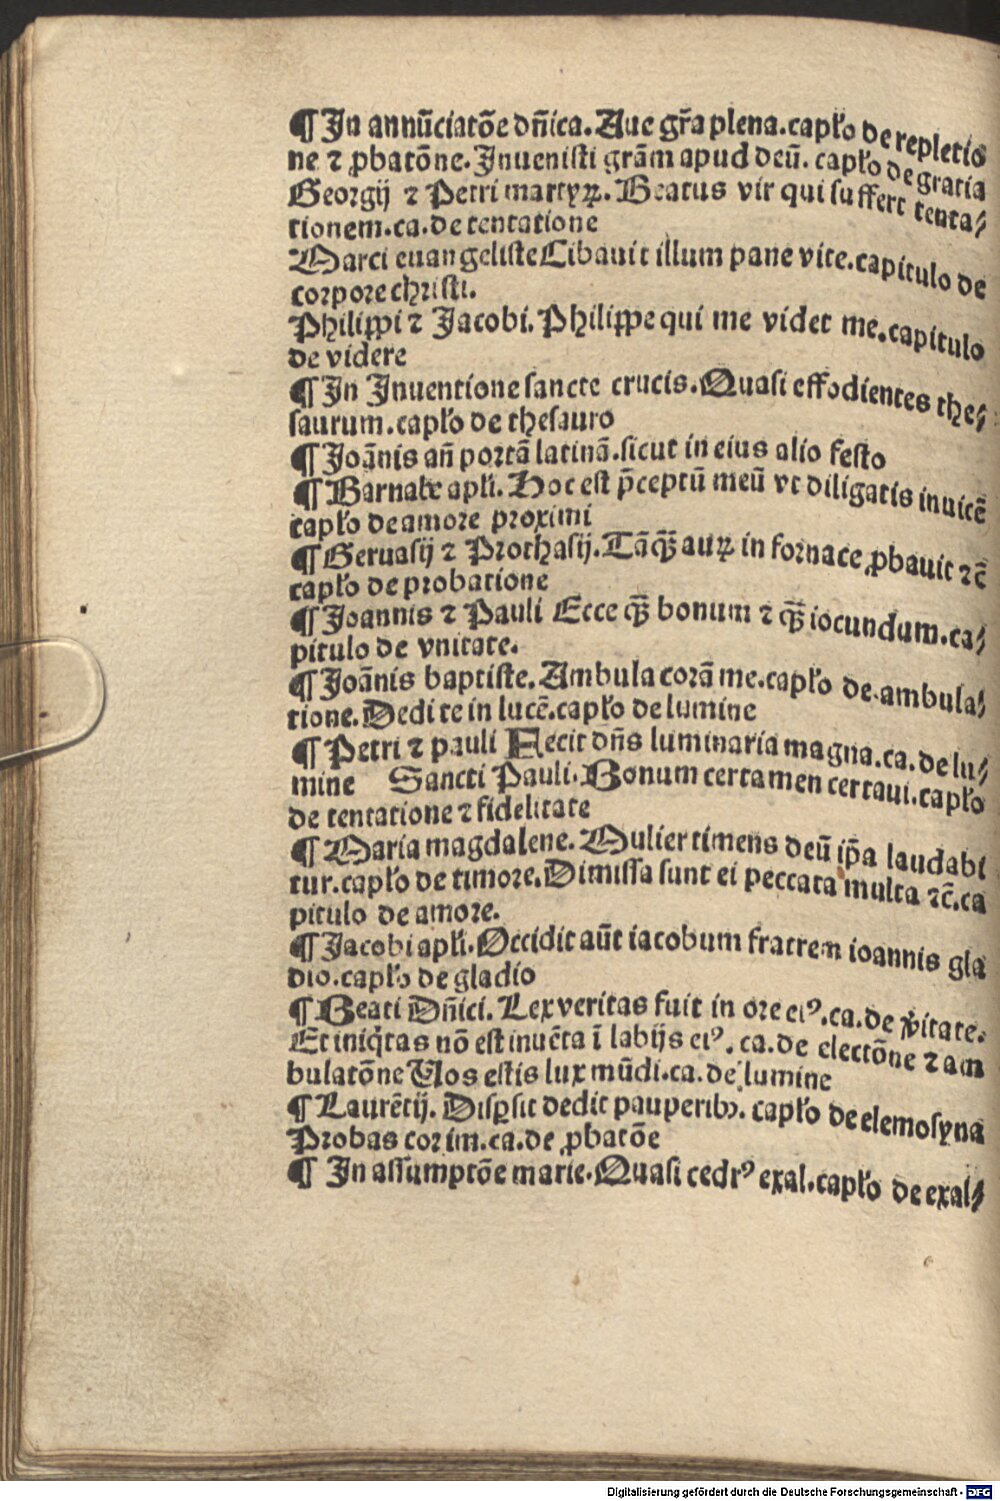 ¶ In annūciatōe dn̄ica. Aue gr̄a plena. capl̓o de repletio
ne ⁊ ꝓbatōne. Inuenisti grām apud deū. capl̓o de gratia
Georgij ⁊ Petri martyrꝝ. Beatus vir qui suffert tenta⸗
tionem. ca. de tentatione
Marci euangeliste Cibauit illum pane vite. capitulo de
corpore christi.
Philippi ⁊ Jacobi. Philippe qui me videt me. capitulo
de videre
¶ In Inuentione sancte crucis. Quasi effodientes the⸗
saurum. capl̓o de thesauro
¶ Joānis an̄ portā latinā. sicut in eius alio festo
¶ Barnabe apl̓i. Hoc est p̄ceptū meū vt diligatis inuicē
capl̓o de amore proximi
¶ Geruasij ⁊ Prothasij. Tāꝙ̄ auꝝ in fornace ꝓbauit ⁊c̄
capl̓o de probatione
¶ Joannis ⁊ Pauli Ecce ꝙ̄ bonum ⁊ ꝙ̄ iocundum. ca⸗
pitulo de vnitate.
¶ Joānis baptiste. Ambula corā me. capl̓o de ambula⸗
tione. Dedi te in lucē. capl̓o de lumine
¶ Petri ⁊ pauli Fecit dn̄s luminaria magna. ca. de lu⸗
mine Sancti Pauli. Bonum certamen certaui. capl̓o
de tentatione ⁊ fidelitate
¶ Maria magdalene. Mulier timens deū ip̄a laudabi
tur. capl̓o de timore. Dimissa sunt ei peccata multa ⁊c̄. ca
pitulo de amore.
¶ Jacobi apl̓i. Occidit aūt iacobum fratrem ioannis gla
dio. capl̓o de gladio
¶ Beati Dn̄ici. Lex veritas fuit in ore eiꝰ. ca. de v̓itate.
Et iniq̇tas nō est inuēta ī labijs eiꝰ. ca. de electōne ⁊ am
bulatōne Vos estis lux mūdi. ca. de lumine
¶ Laurētij. Disꝑsit dedit pauperibꝫ. capl̓o de elemosyna
Probas cor im. ca. de ꝓbatōe
¶ In assumptōe marie. Quasi cedrꝰ exal. capl̓o de exal⸗
Digitalisierung gefördert durch die Deutsche Forschungsgemeinschaft - DFG